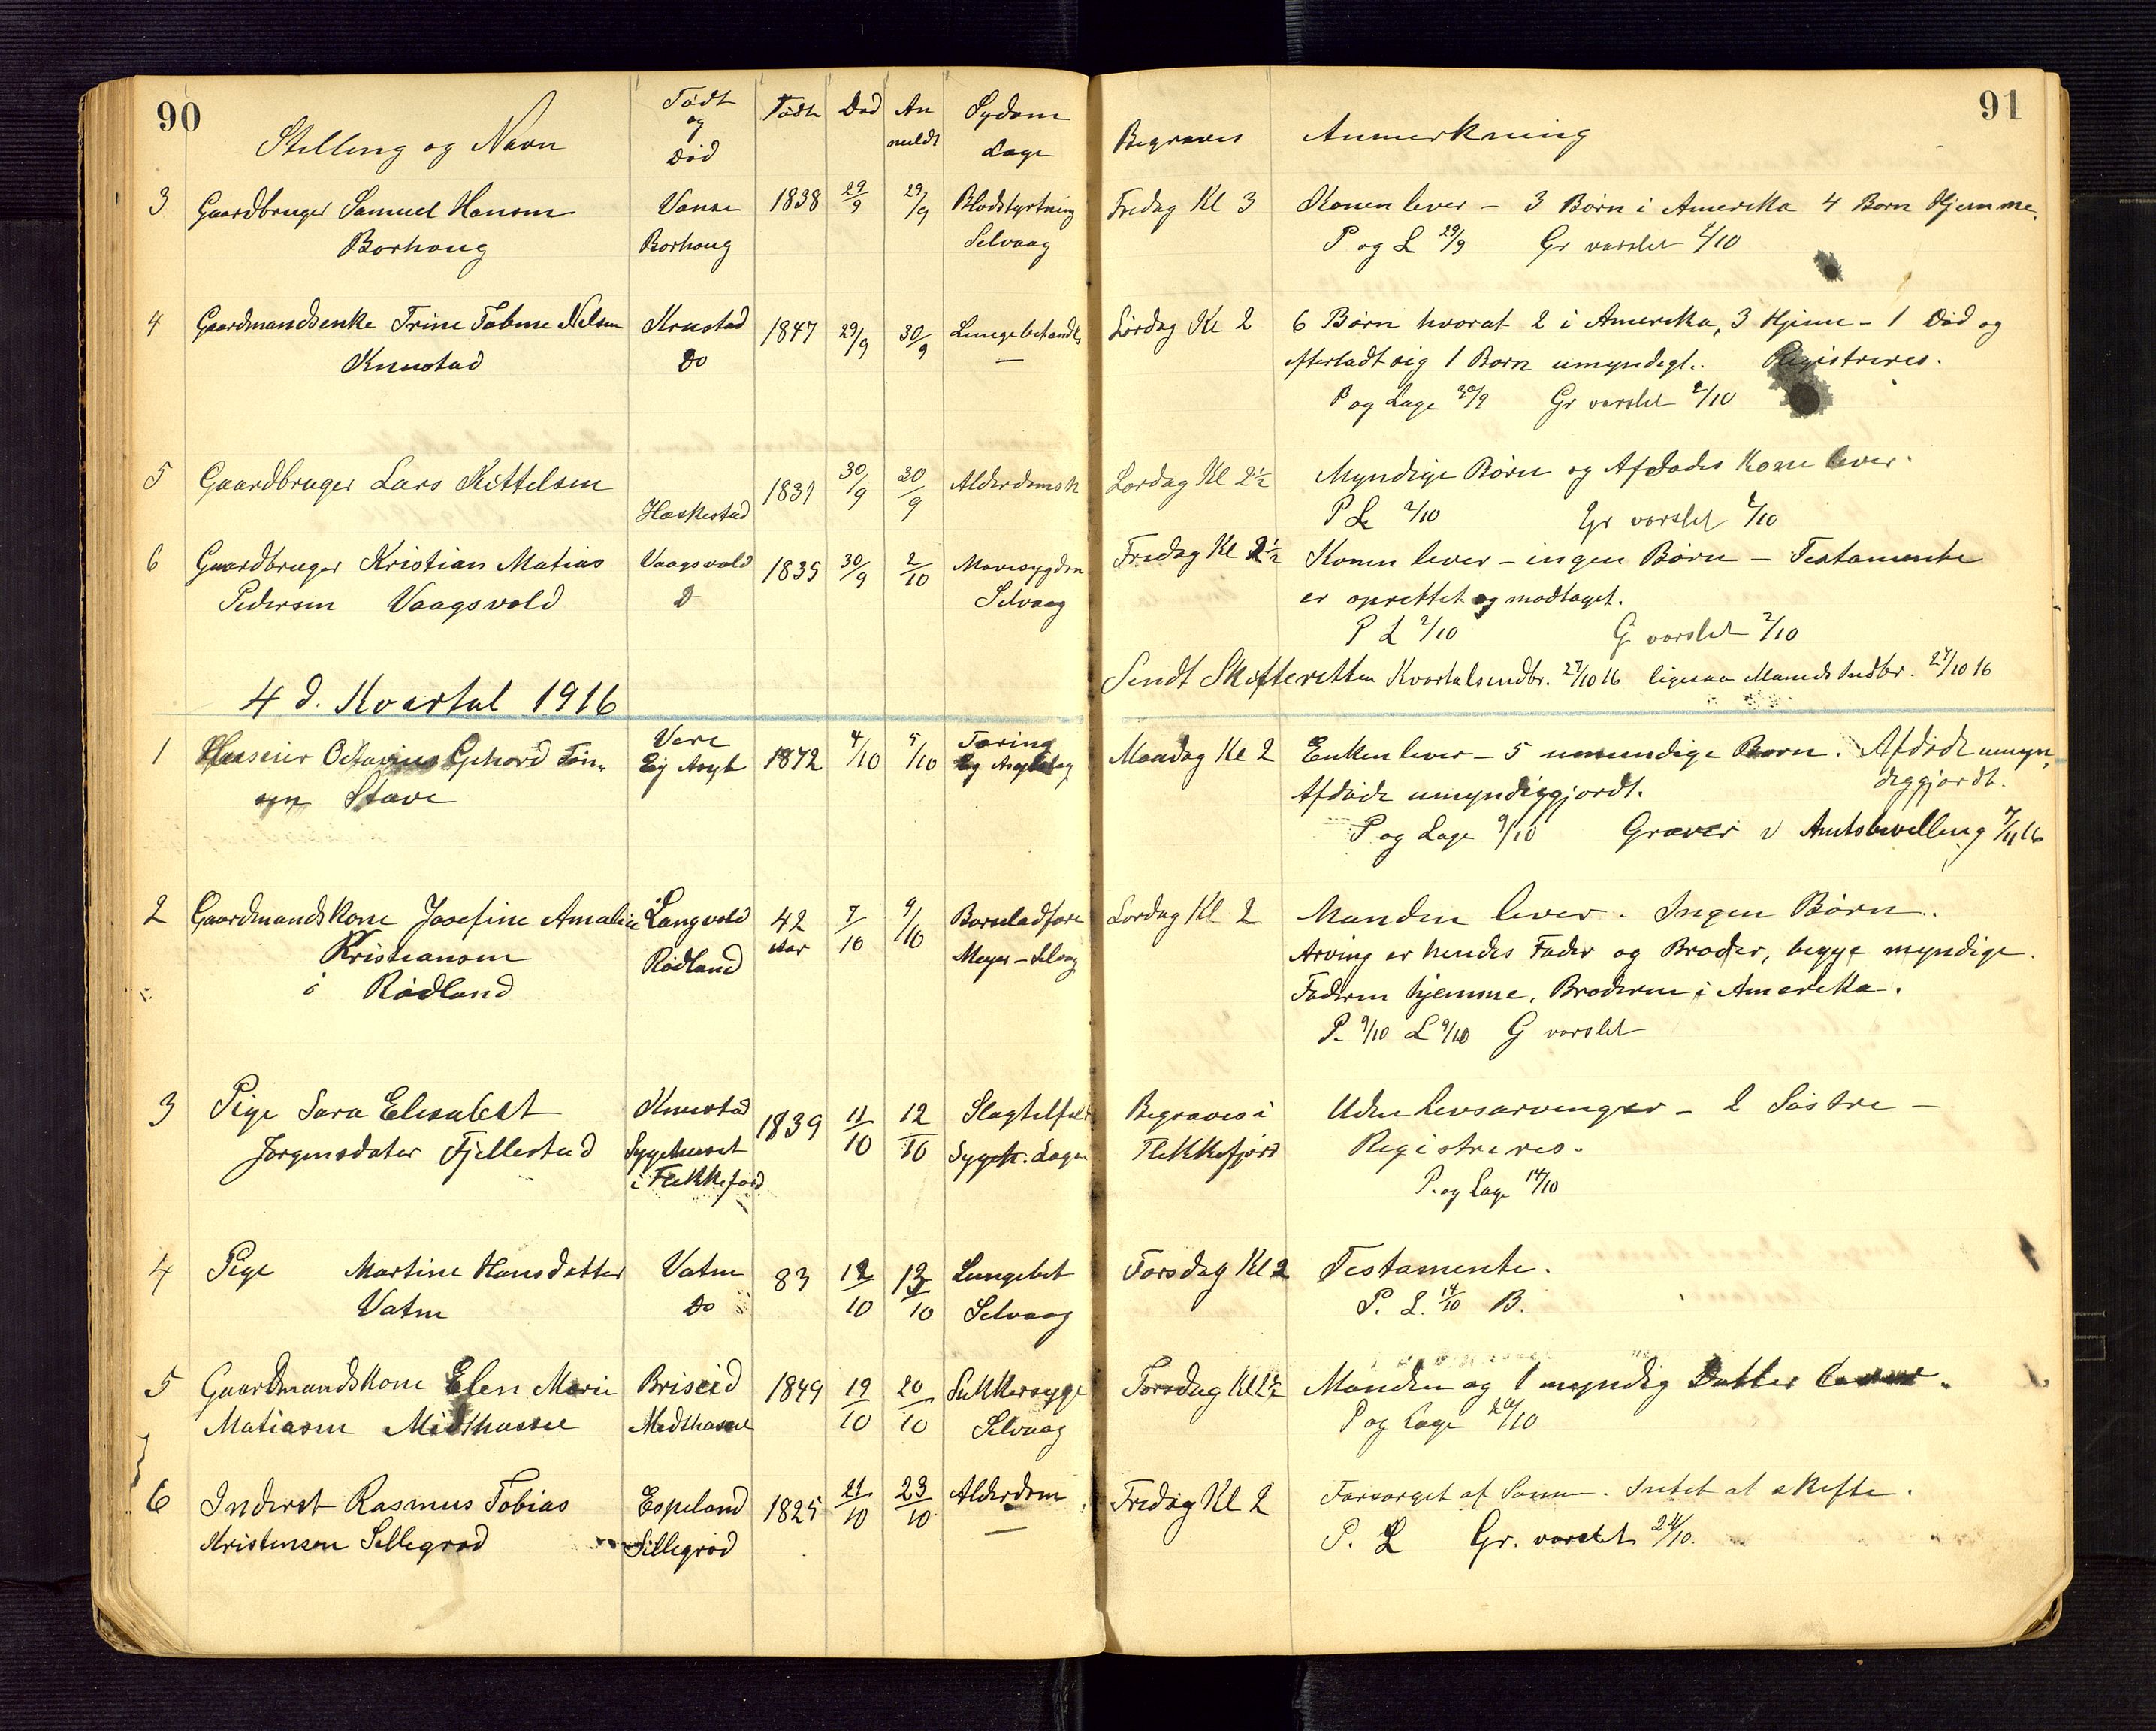 90
91
Stilling og Navn
Født og Død
Født
Død
An meldt
Sydom Læge
Begraves
Anmerkning
3 Gaardbruger Samuel Hansen Vanse 1838 29/9 29/9 Blodstyrtning Fredag Kl 3 Konen lever – 3 Børn i Amerika 4 Børn Hjemme.
Borhaug Borhaug Selvaag P og L 29/9 Gr varslet 2/10
4 Gaardmandsenke Trine Tobine Nilsen Knustad 1847 29/9 30/9 Lungebetændt Lørdag Kl 2 6 Børn hvoraf 2 i Amerika, 3 Hjeme – 1 Død og
Knustad Do — efterladt sig 1 Barn umyndigt. Registreres.
P og Læge 30/9 Gr varslet 2/10
5 Gaardbruger Lars Kittelsen 1831 30/9 30/9 Alderdomsk Lørdag Kl 2½ Myndige Børn og Afdødes Kone lever.
Haskestad P L 2/10 Gr varslet 2/10
6 Gaardbruger Kristian Matias Vaagsvold 1835 30/9 2/10 Mavesygdm Fredag Kl 2½ Konen lever – ingen Børn – Testamente
Pedersen Vaagsvold D Selvaag er oprettet og modtaget.
P L 2/10 G varslet 2/10
Sendt Skifteretten Kvartalsindbr. 27/10 16 ligesaa Maneds Indbr. 27/10 16
4 d. Kvartal 1916
1 Husseier Octavius Gehard Tøn- Vere 1872 4/10 5/10 Tæring Mandag Kl 2 Enken lever – 5 umundige Børn. Afdøde umyn-
sen Stave Eg Asyl Eg Asyl Læg Afdøde umyndiggjordt. diggjordt.
P og Læge 9/10 Graver v Amtsbevilling 7/11 16
2 Gaardmandskone Josefine Amalie Langvold 42 Aar 7/10 9/10 Barnladfore Lørdag Kl 2 Manden lever. Ingen Børn.
Kristiansen Rødland Meyer – Selvag Arving er hendes Fader og Broder, begge myndige.
i Rødland Faderen hjemme, Broderen i Amerika.
P. 9/10 L 9/10 G varslet
3 Pige Sara Elisabet Knustad 1839 11/10 12/10 Slagtilfeld Begraves i Uden Livsarvinger – 2 Søstre –
Jørgensdater Fjellestad Sygehuset i Flekkefjord Sygeh. Lægen Flekkefjord Registreres.
P. og Læge 14/10
4 Pige Martine Hansdatter Vatne 83 12/10 13/10 Lungebet Torsdag Kl 2 Testamente.
Vatne Do Selvaag P. L. 14/10 B.
5 Gaardmandskone Elen Marie Briseid 1849 19/10 20/10 Sukkersyge Torsdag Kl 1½ Manden og 1 myndig Datter lever.
Matiasen Midthassel Midthassel Selvaag P og Læge 20/10
6 Inderst Rasmus Tobias Espeland 1825 21/10 23/10 Alderdom Fredag Kl 2 Forsørget af Sønnen. Intet at skifte.
Kristensen Sellegrod Sellegrod — P. L Gr. varslet 24/10.